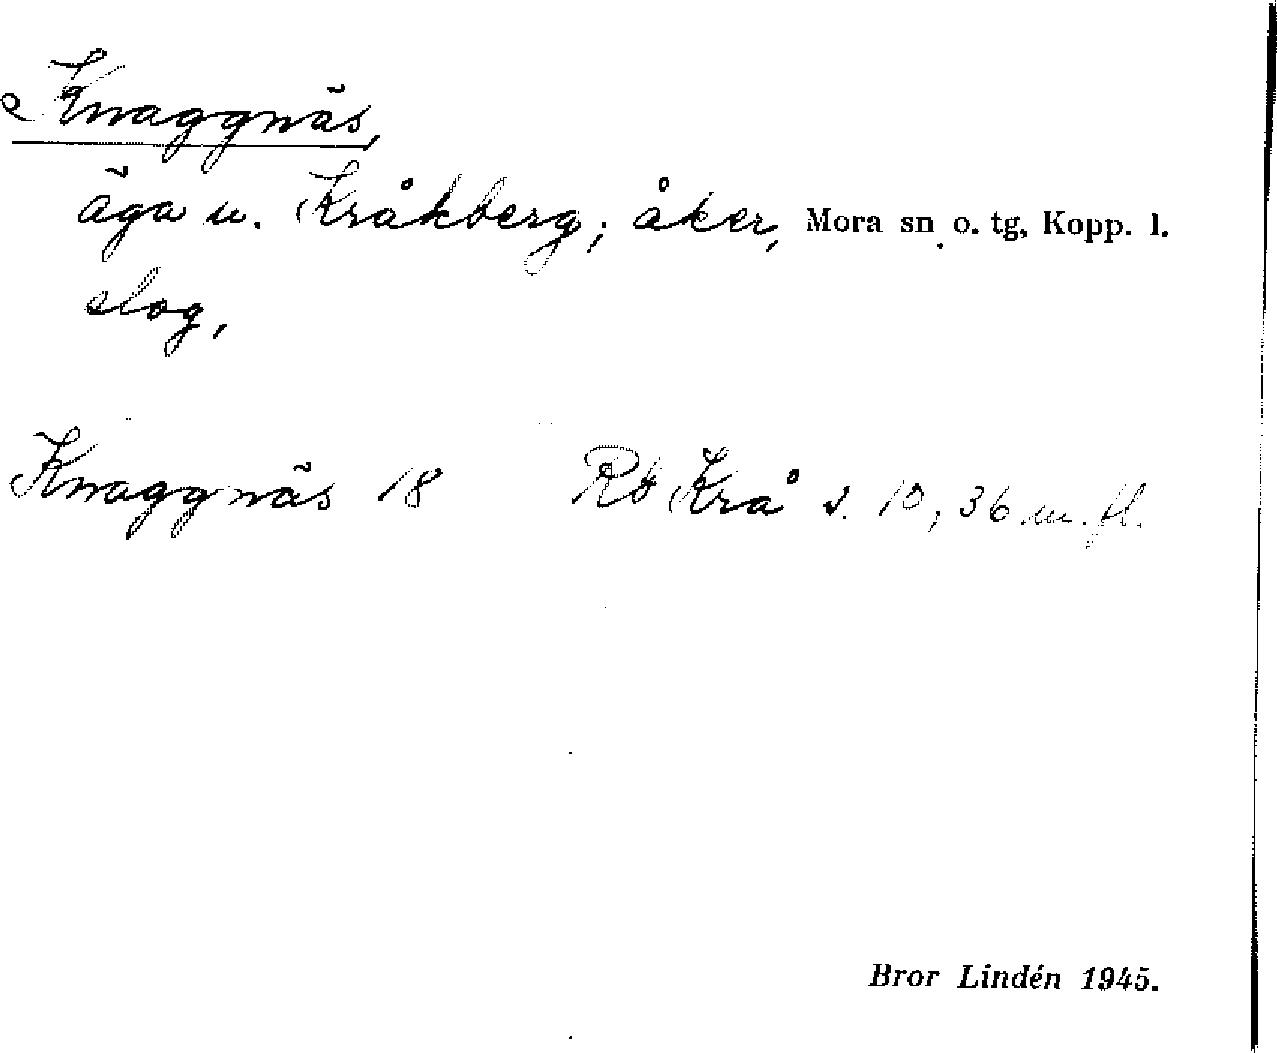 Knaggnäs,
äga u. Kråkberg; åker, Mora sn o. tg, Kopp. l.
slog,
Knaggnäs 18 Rö Krå s. 10, 36 m. fl.
Bror Lindén 1945.